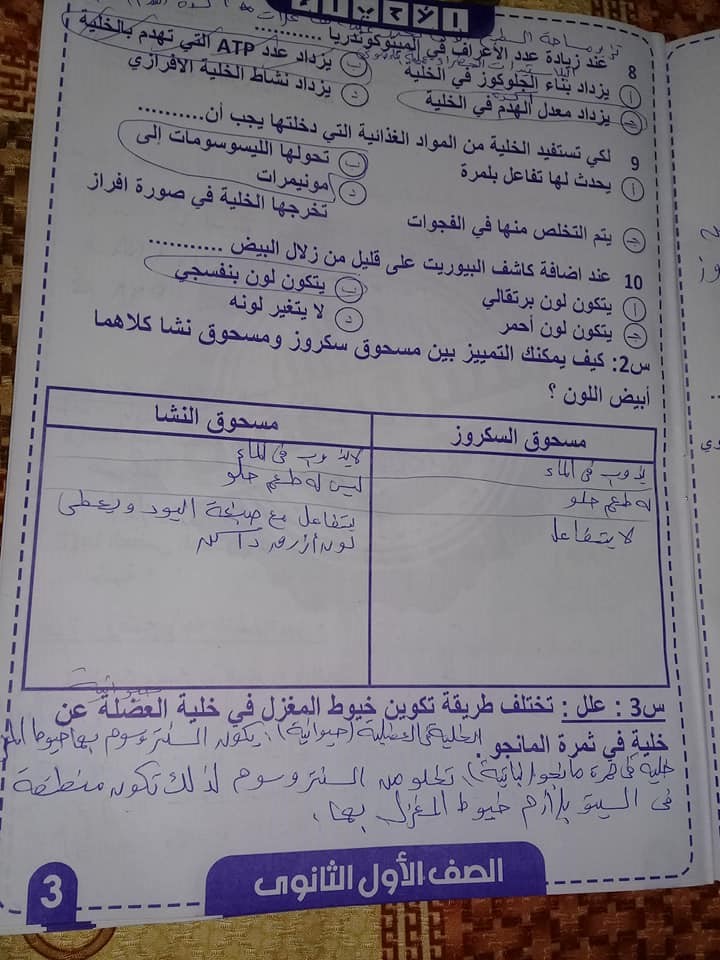 الأحياء
8 عند زيادة عدد الأعراف في الميتوكوندريا ..........
أ يزداد بناء الجلوكوز في الخلية
ب يزداد عدد ATP التي تهدم بالخلية
ج يزداد معدل الهدم في الخلية
د يزداد نشاط الخلية الافرازي
9 لكي تستفيد الخلية من المواد الغذائية التي دخلتها يجب أن..........
أ يحدث لها تفاعل بلمرة
ب تحولها الليسوسومات إلى
مونيمرات
ج يتم التخلص منها في الفجوات
د تخرجها الخلية في صورة افراز
10 عند اضافة كاشف البيوريت على قليل من زلال البيض ..........
أ يتكون لون برتقالي
ب يتكون لون بنفسجي
ج يتكون لون أحمر
د لا يتغير لونه
س2: كيف يمكنك التمييز بين مسحوق سكروز ومسحوق نشا كلاهما
أبيض اللون ؟
مسحوق السكروز
مسحوق النشا
يذوب في الماء
لايذوب في الماء
له طعم حلو
ليس له طعم حلو
لا يتفاعل
يتفاعل مع صبغة اليود ويعطى
لون أزرق داكن
حيوانية
س3 : علل : تختلف طريقة تكوين خيوط المغزل في خلية العضلة عن
خلية في ثمرة المانجو .
العضلية (حيوانية) يكون السنتروسوم بها خيوط
خلية ثمرة مانجو (نباتية) تخلو من السنتروسوم لذلك تكون منطقة
في السيتوبلازم خيوط المغزل بها.
الصف الأول الثانوى
3